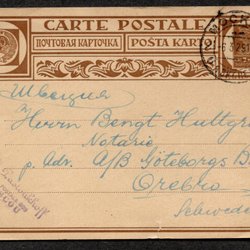 CARTE POSTALE
ПОЧТОВАЯ КАРТОЧКА POŜTA KAR
Швеция
Herrn Bengt Hultgr
Notarie
p. Adr. A/B Göteborgs B
Örebro
Schwede